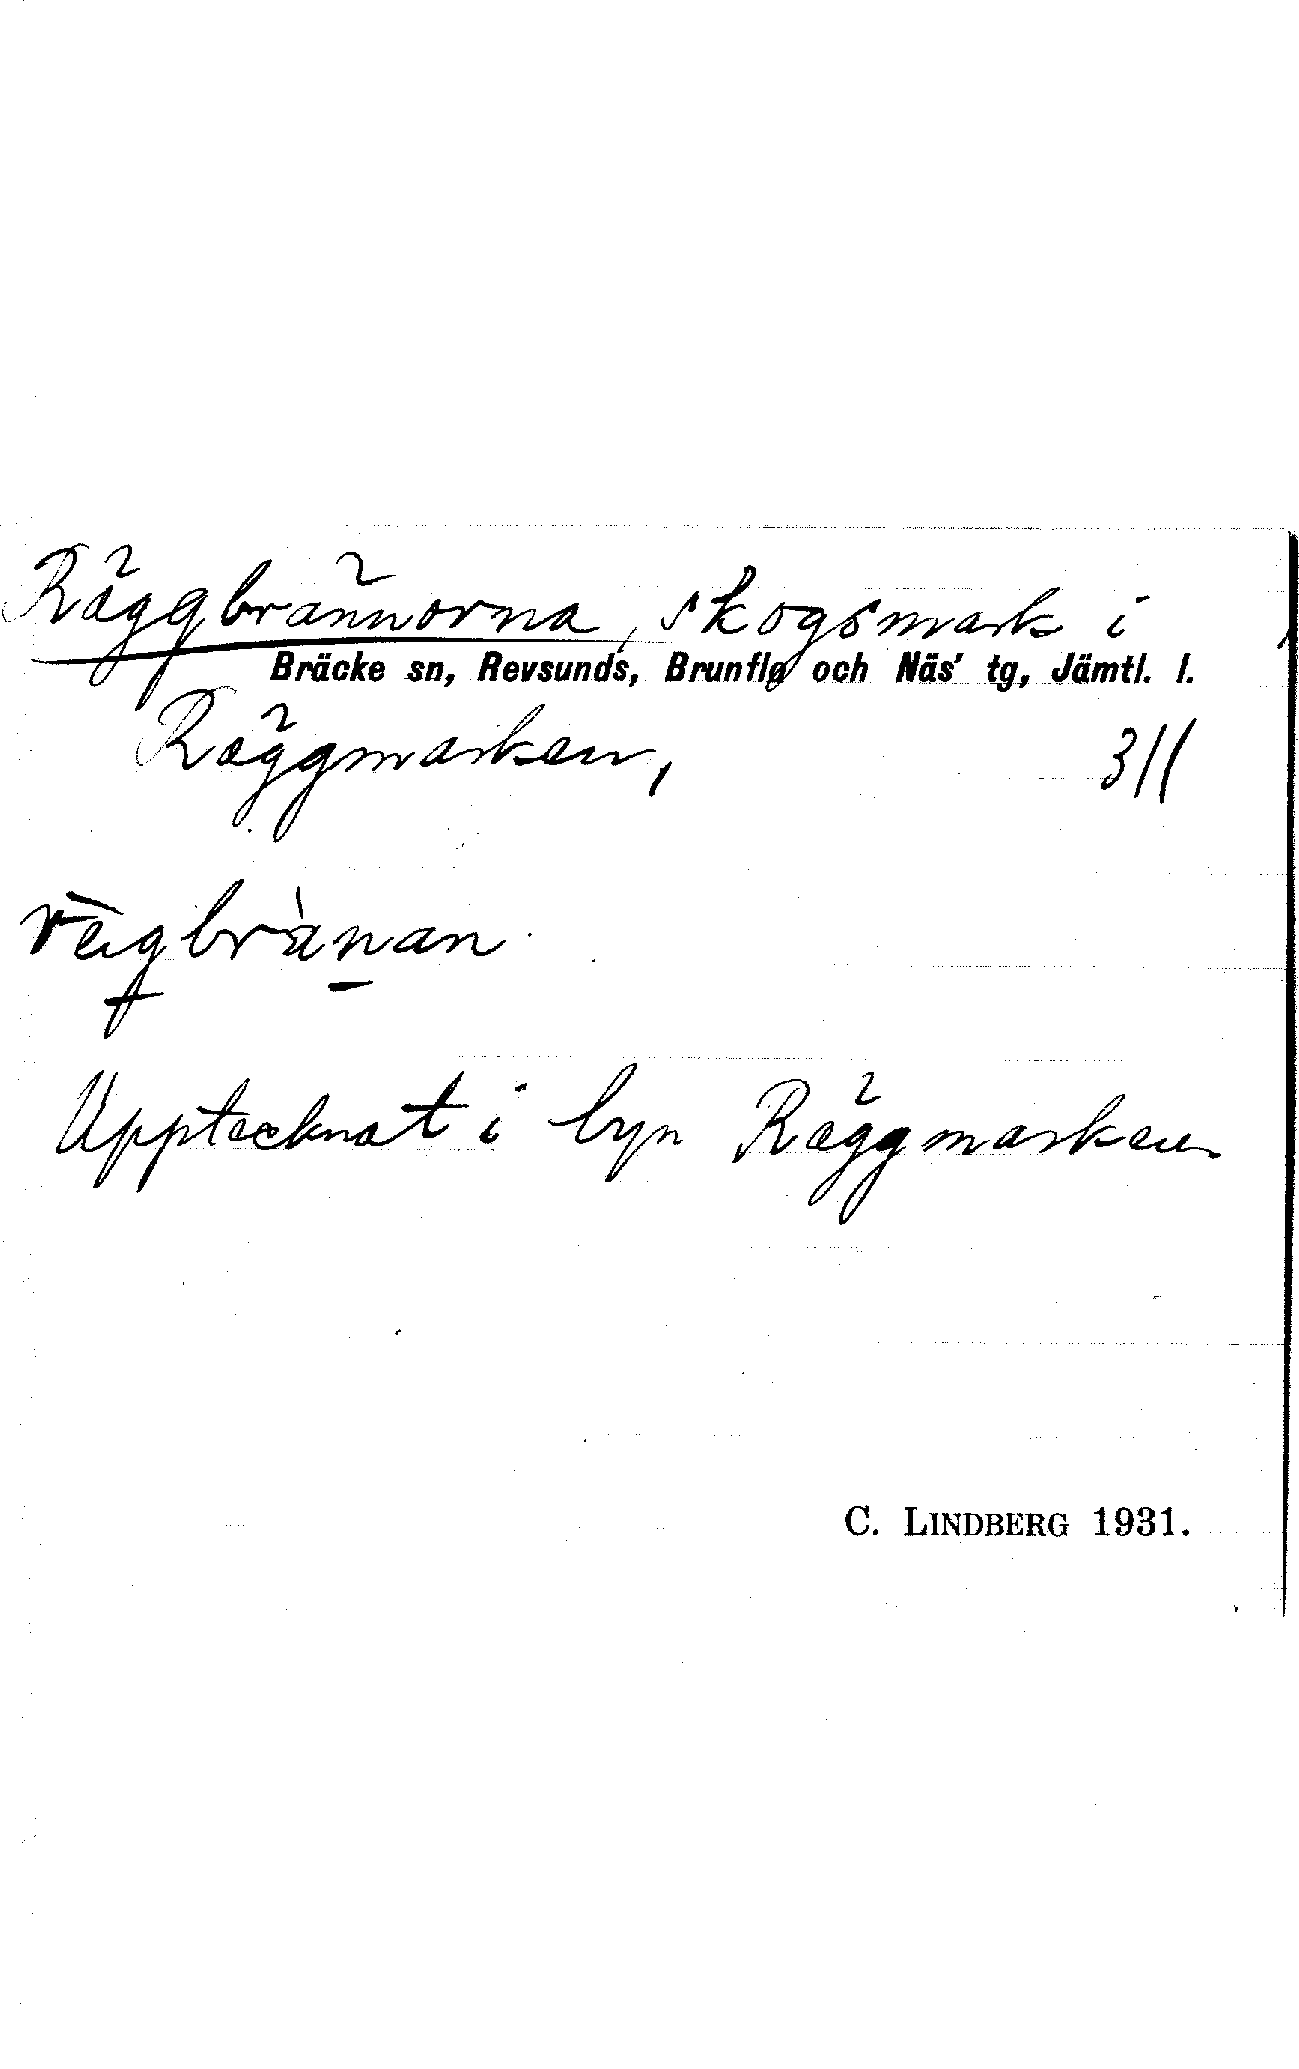 Räggbrännorna, skogsmark i
Bräcke sn, Revsunds, Brunflo och Näs' tg, Jämtl. l.
Räggmarken, 311
règbrànan
Upptecknat i byn Räggmarken
C. LINDBERG 1931.